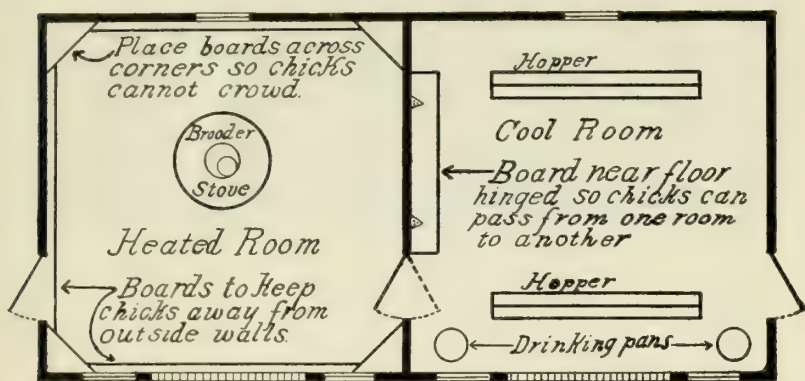 Place boards across
corners so chicks
cannot crowd.
Brooder
Stove
Heated Room
Boards to keep
chicks away from
outside walls.
Hopper
Cool Room
Board near floor
hinged so chicks can
pass from one room
to another
Hopper
Drinking pans